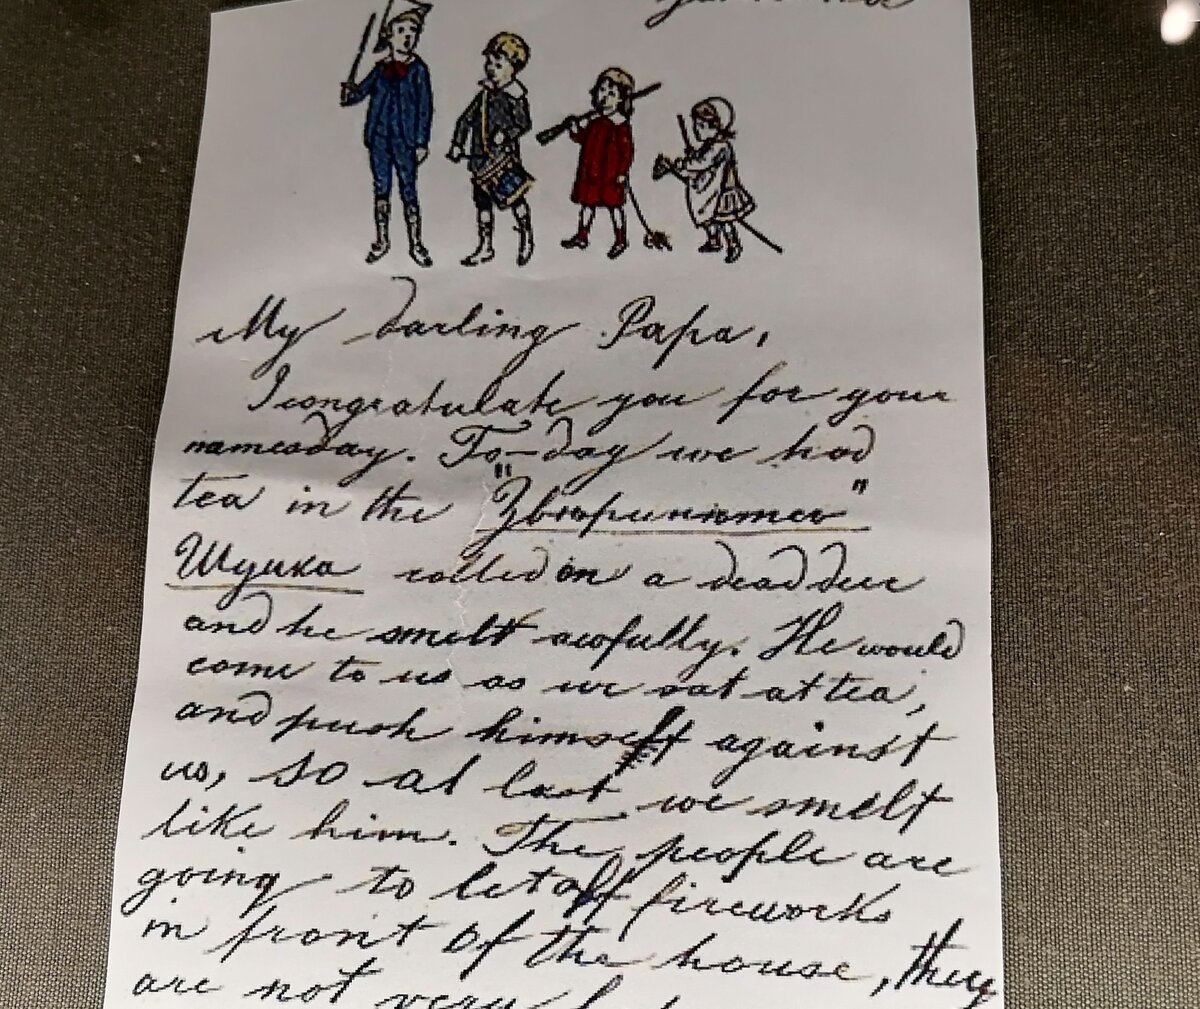 My darling Papa,
I congratulate you for your
namesday. To-day we had
tea in the "Звѣринцѣ"
Шушка rolled on a dead deer
and he smelt awfully. He would
come to us as we sat at tea,
and push himself against
us, so at last we smelt
like him. The people are
going to let off fireworks
in front of the house, they
are not very